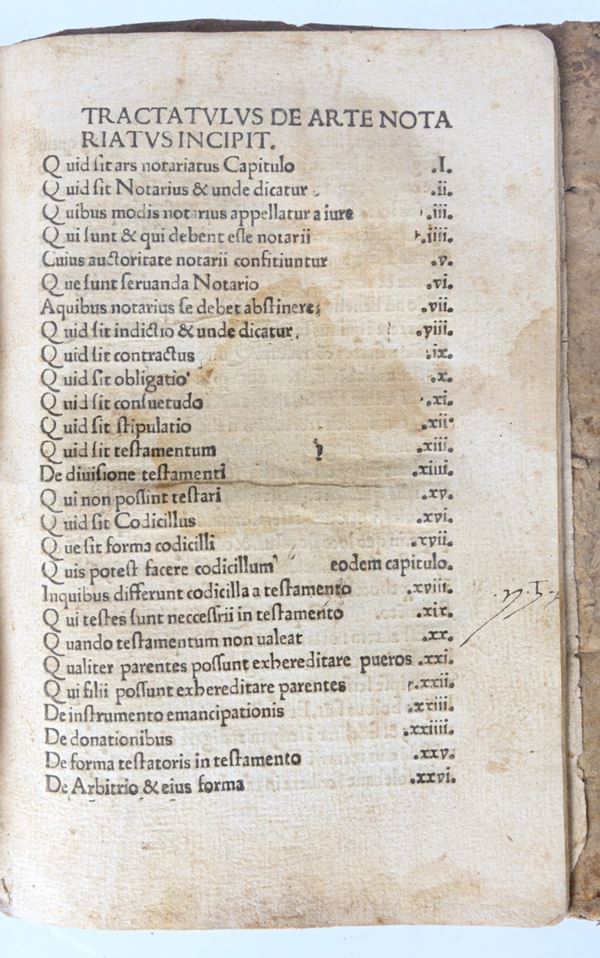 TRACTATVLVS DE ARTE NOTA
RIATVS INCIPIT.
Quid sit ars notariatus Capitulo .I.
Quid sit Notarius & unde dicatur .ii.
Quibus modis notarius appellatur a iure .iii.
Qui sunt & qui debent esse notarii .iiii.
Cuius auctoritate notarii confitiuntur .v.
Que sunt seruanda Notario .vi.
Aquibus notarius se debet abstinere; .vii.
Quid sit indictio & unde dicatur. .viii.
Quid sit contractus .ix.
Quid sit obligatio .x.
Quid sit consuetudo .xi.
Quid sit stipulatio .xii.
Quid sit testamentum .xiii.
De diuisione testamenti .xiiii.
Qui non possint testari .xv.
Quid sit Codicillus .xvi.
Que sit forma codicilli .xvii.
Quis potest facere codicillum eodem capitulo.
Inquibus differunt codicilla a testamento .xviii.
Qui testes sunt neccessrii in testamento .xix.
Quando testamentum non ualeat .xx.
Qualiter parentes possunt exhereditare pueros .xxi.
Qui filii possunt exhereditare parentes .xxii.
De instrumento emancipationis .xxiii.
De donationibus .xxiiii.
De forma testatoris in testamento .xxv.
De Arbitrio & eius forma .xxvi.